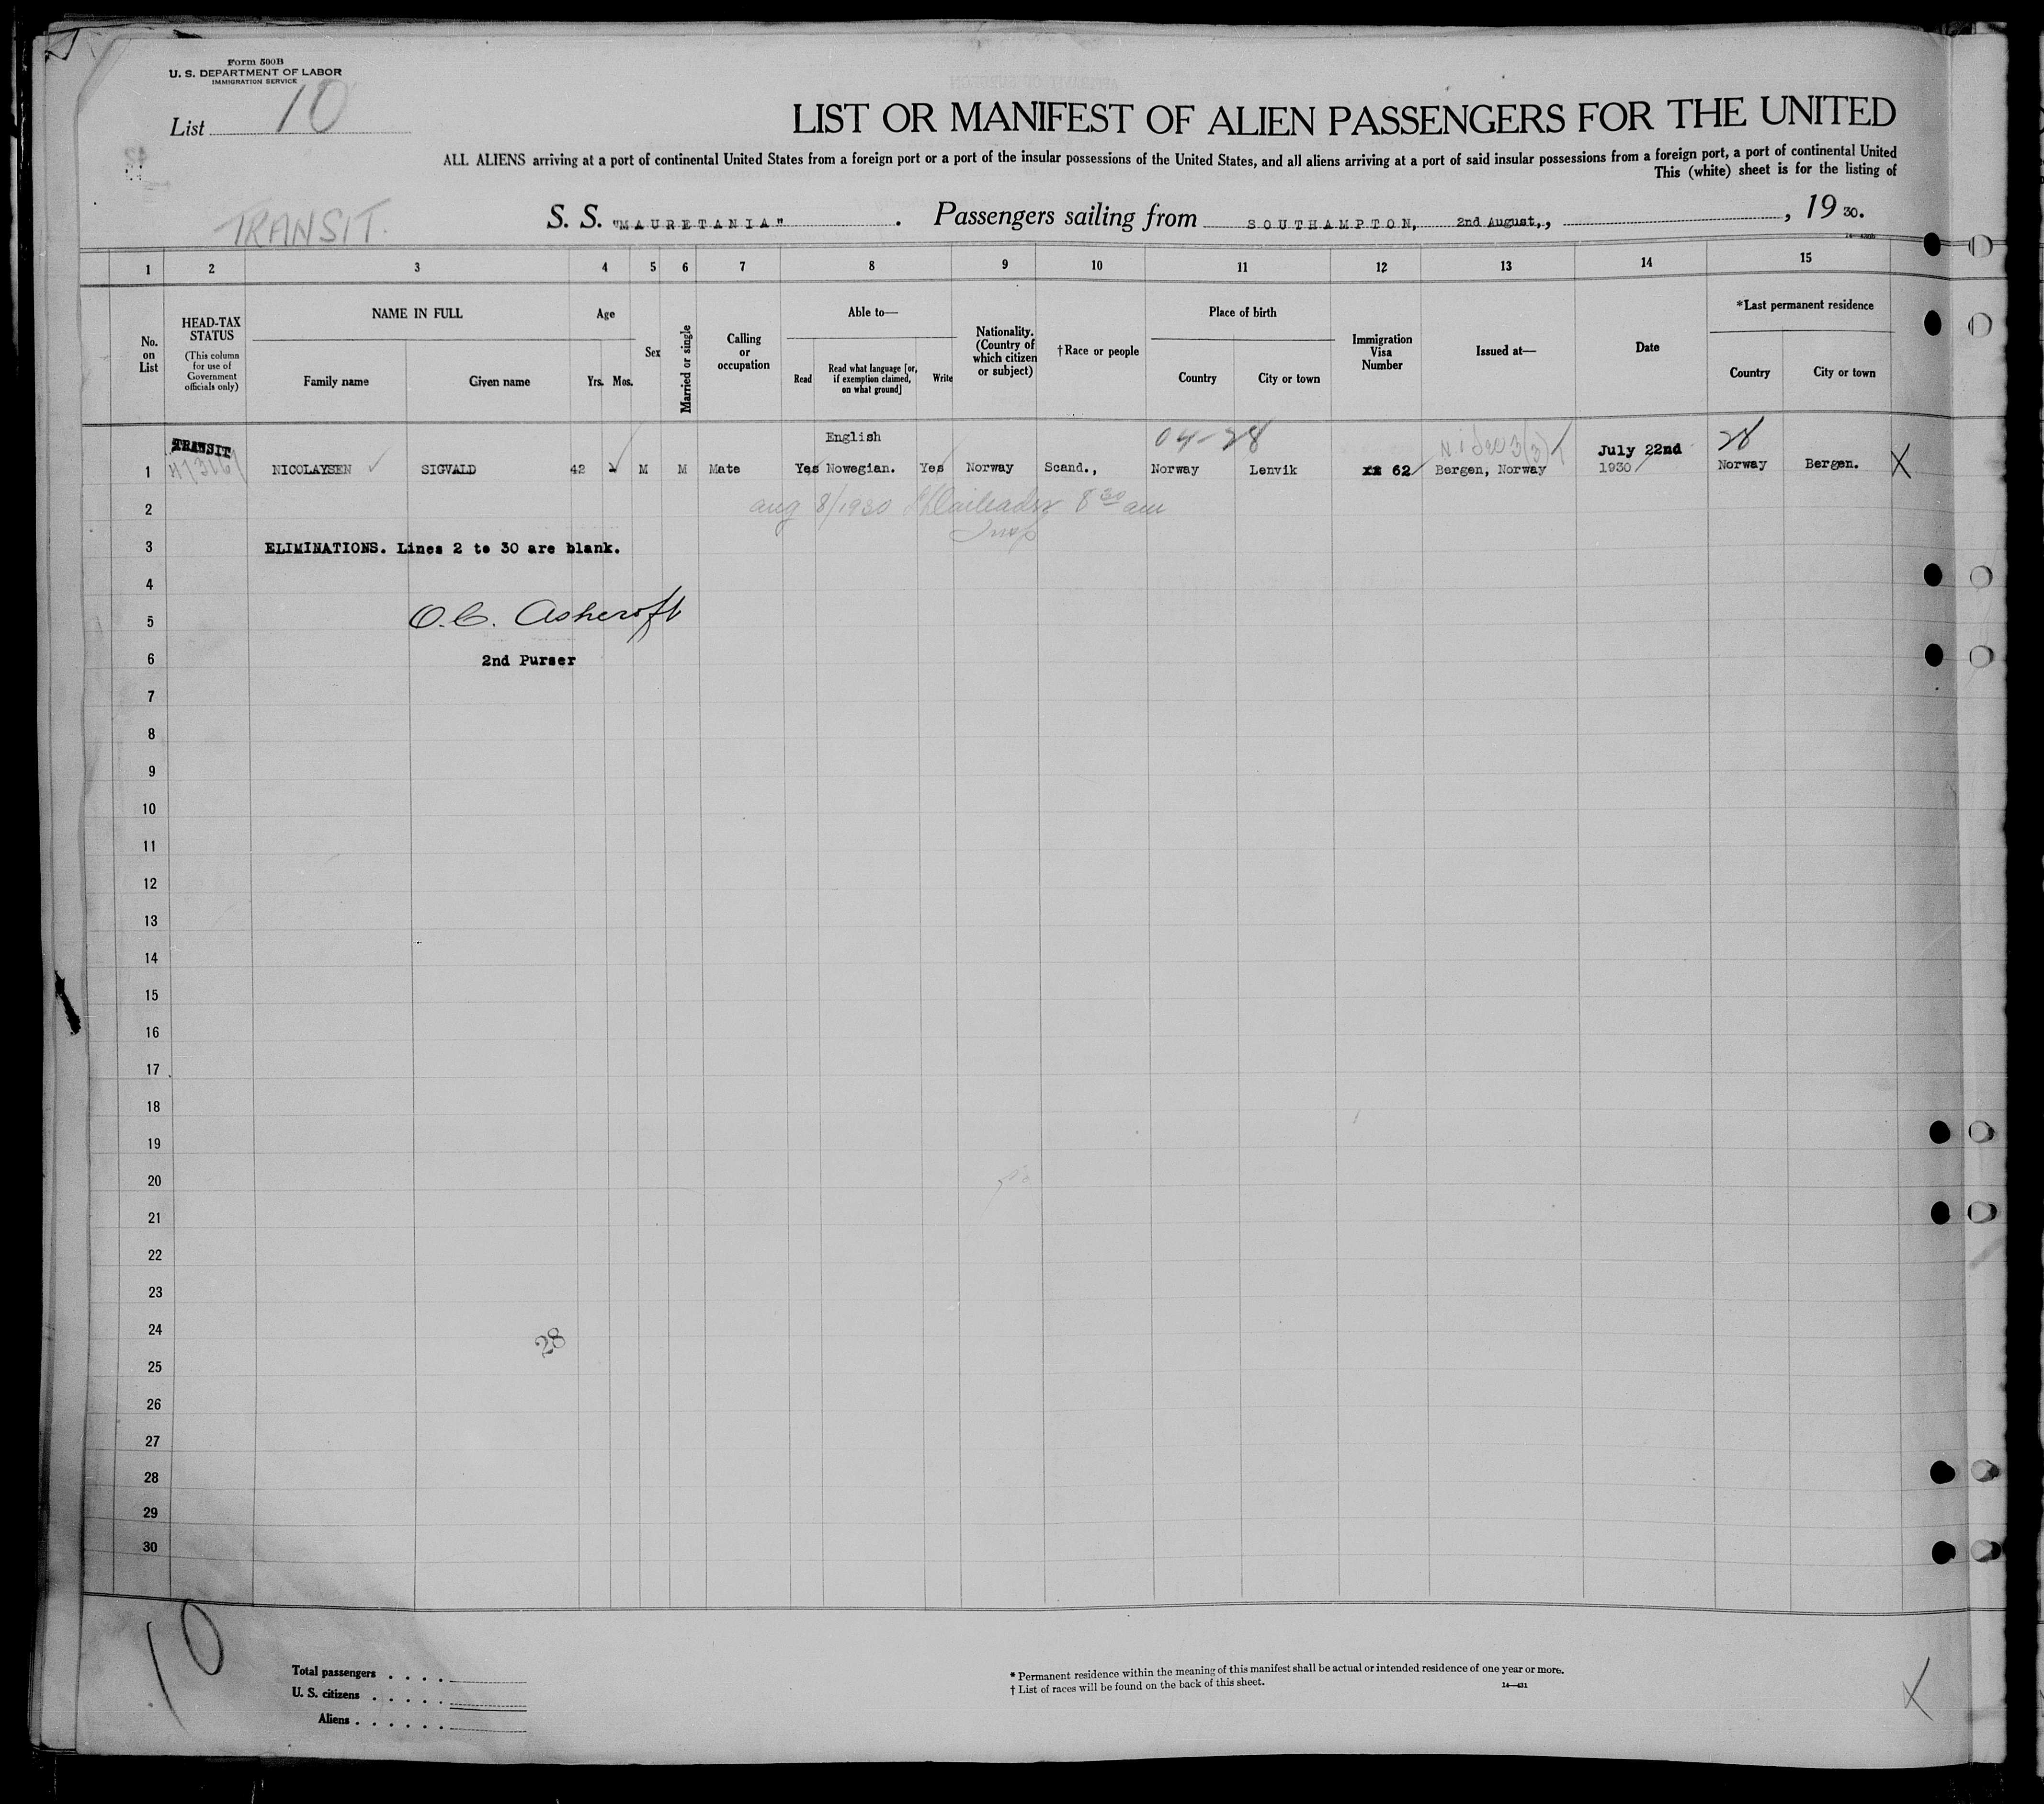 Form 500B
U. S. DEPARTMENT OF LABOR
IMMIGRATION SERVICE
List 10
LIST OR MANIFEST OF ALIEN PASSENGERS FOR THE UNITED
ALL ALIENS arriving at a port of continental United States from a foreign port or a port of the insular possessions of the United States, and all aliens arriving at a port of said insular possessions from a foreign port, a port of continental United
This (white) sheet is for the listing of
TRANSIT.
S. S. "MAURETANIA" . Passengers sailing from SOUTHAMPTON, 2nd August,, , 19 30.
1 2 3 4 5 6 7 8 9 10 11 12 13 14 15
No. on List
HEAD-TAX STATUS
(This column for use of Government officials only)
NAME IN FULL
Family name
Given name
Age
Yrs. Mos.
Sex
Married or single
Calling or occupation
Able to—
Read
Read what language [or, if exemption claimed, on what ground]
Write
Nationality. (Country of which citizen or subject)
†Race or people
Place of birth
Country
City or town
Immigration Visa Number
Issued at—
Date
*Last permanent residence
Country
City or town
TRANSIT
English
04-28
July 22nd
28
1 NICOLAYSEN ✓ SIGVALD 42 M M Mate Yes Nowegian. Yes Norway Scand., Norway Lenvik 62 Bergen, Norway 1930 Norway Bergen. X
2
aug 8/1930 8 30 am
Insp
3 ELIMINATIONS. Lines 2 to 30 are blank.
4
5 O.C. Ashcroft
6 2nd Purser
7
8
9
10
11
12
13
14
15
16
17
18
19
20
21
22
23
24
28
25
26
27
28
29
30
10
Total passengers . . . .
U. S. citizens . . . . .
Aliens . . . . . .
* Permanent residence within the meaning of this manifest shall be actual or intended residence of one year or more.
† List of races will be found on the back of this sheet.
14—431
X